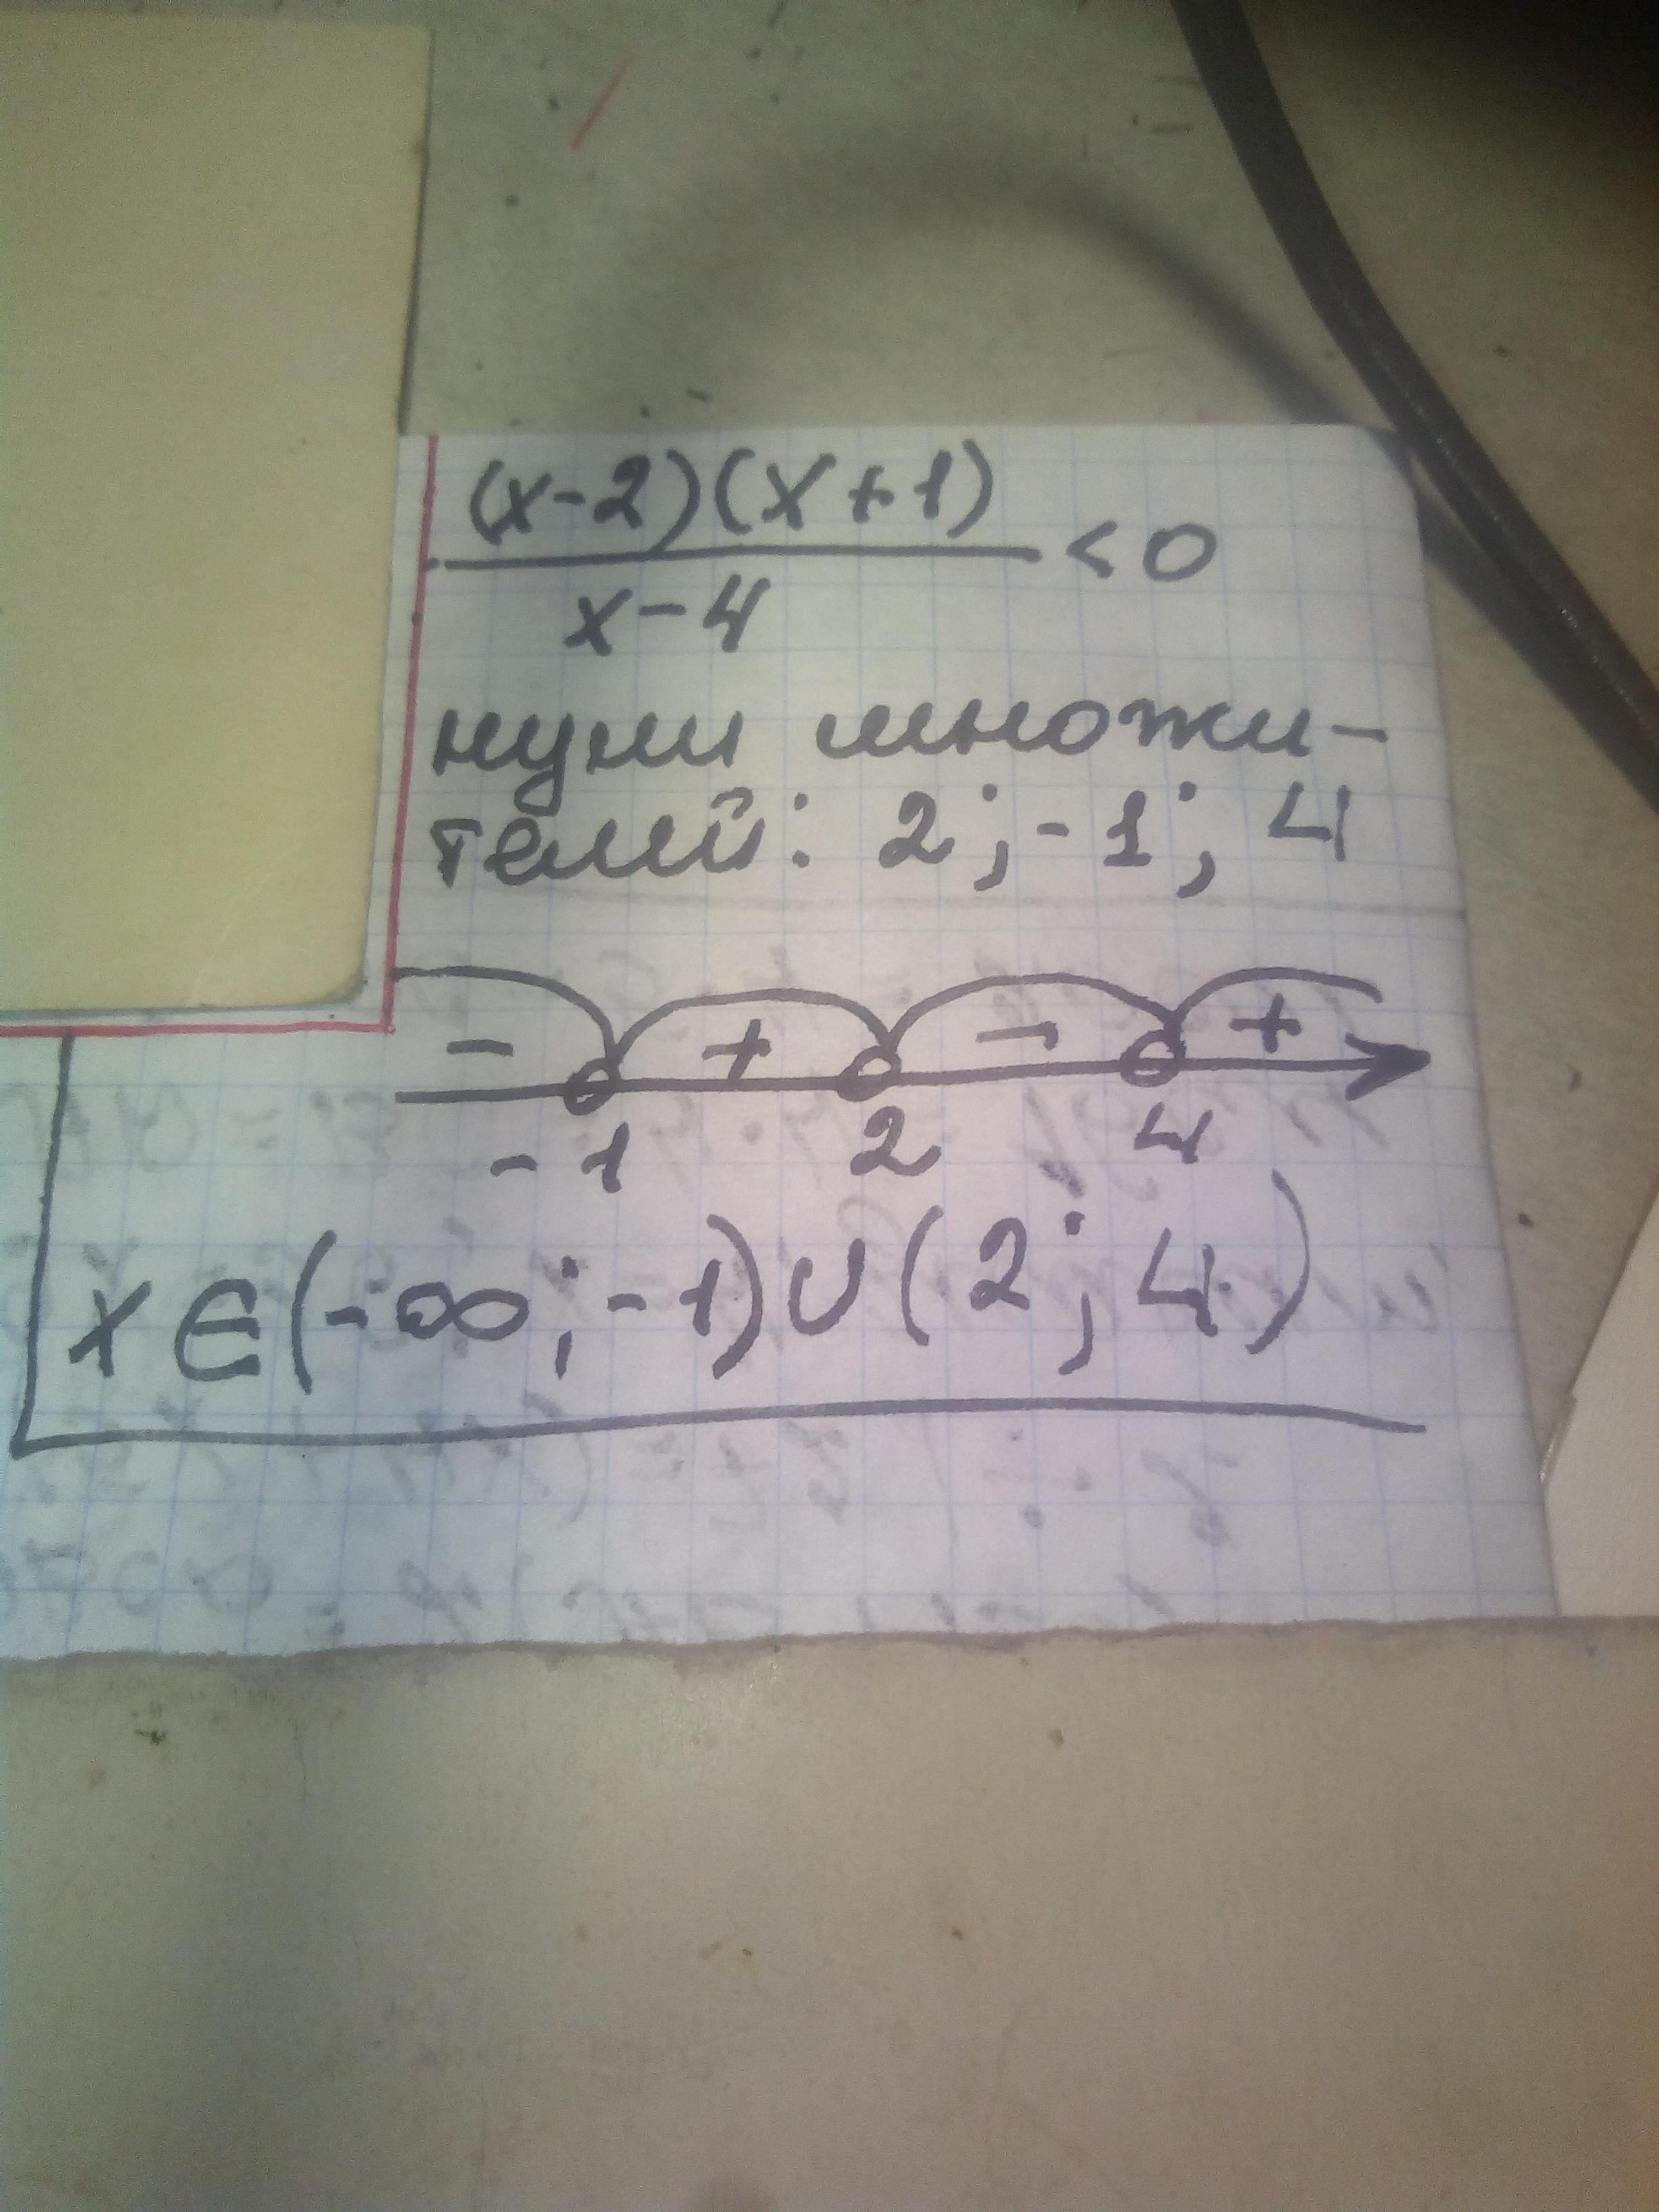 (x-2)(x+1)
x-4
<0
нули множи-
телей: 2; -1; 4
- + - +
-1 2 4
x∈(-∞; -1)∪(2; 4)